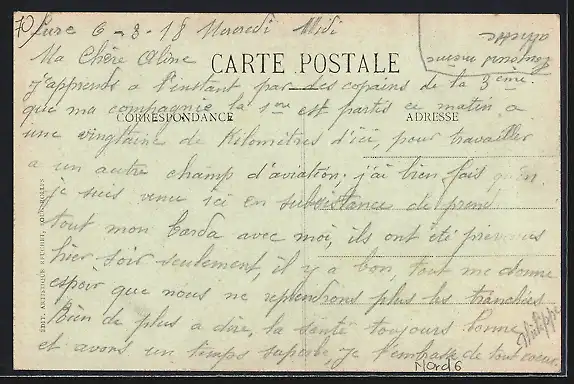 70
Lure 6-8-18 Mercredi Midi
Ma Chère Aline
CARTE POSTALE
J'apprends a l'instant par les copains de la 3ème.
que ma compagnie la 1ère est partis ce matin a
CORRESPONDANCE
ADRESSE
une vingtaine de Kilomètres d'ici, pour travailler
a un autre champ d'aviation. j'ai bien fais qu'en
je suis venu ici en subsistances de prend
tout mon barda avec moi, ils ont été prevenus
hier soir seulement, il y a bon, tout me donne
espoir que nous ne reprendrons plus les tranchées
Rien de plus a dire, la santé toujours bonne
et avons un temps superbe, je t'embrasse de tout coeur.
Philippe
Mord 6